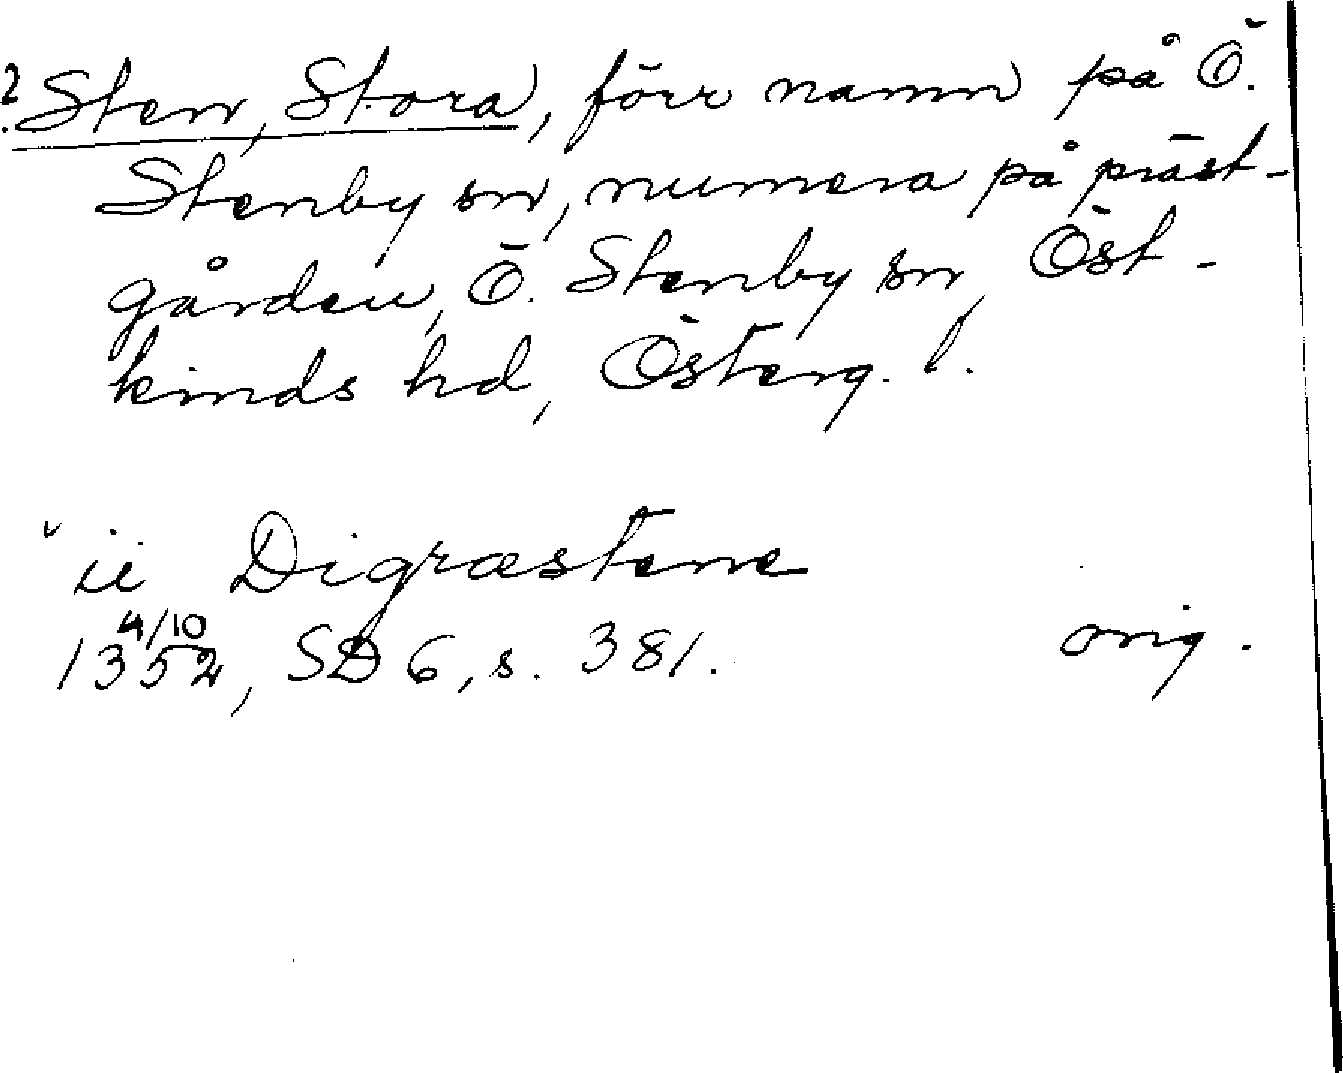 ? Sten, Stora, förr namn på Ö.
Stenby sn, numera på präst-
gården, Ö. Stenby sn, Öst-
kinds hd, Österg. l.
ii Digræstene
1352 4/10, SD 6, s. 381. orig.